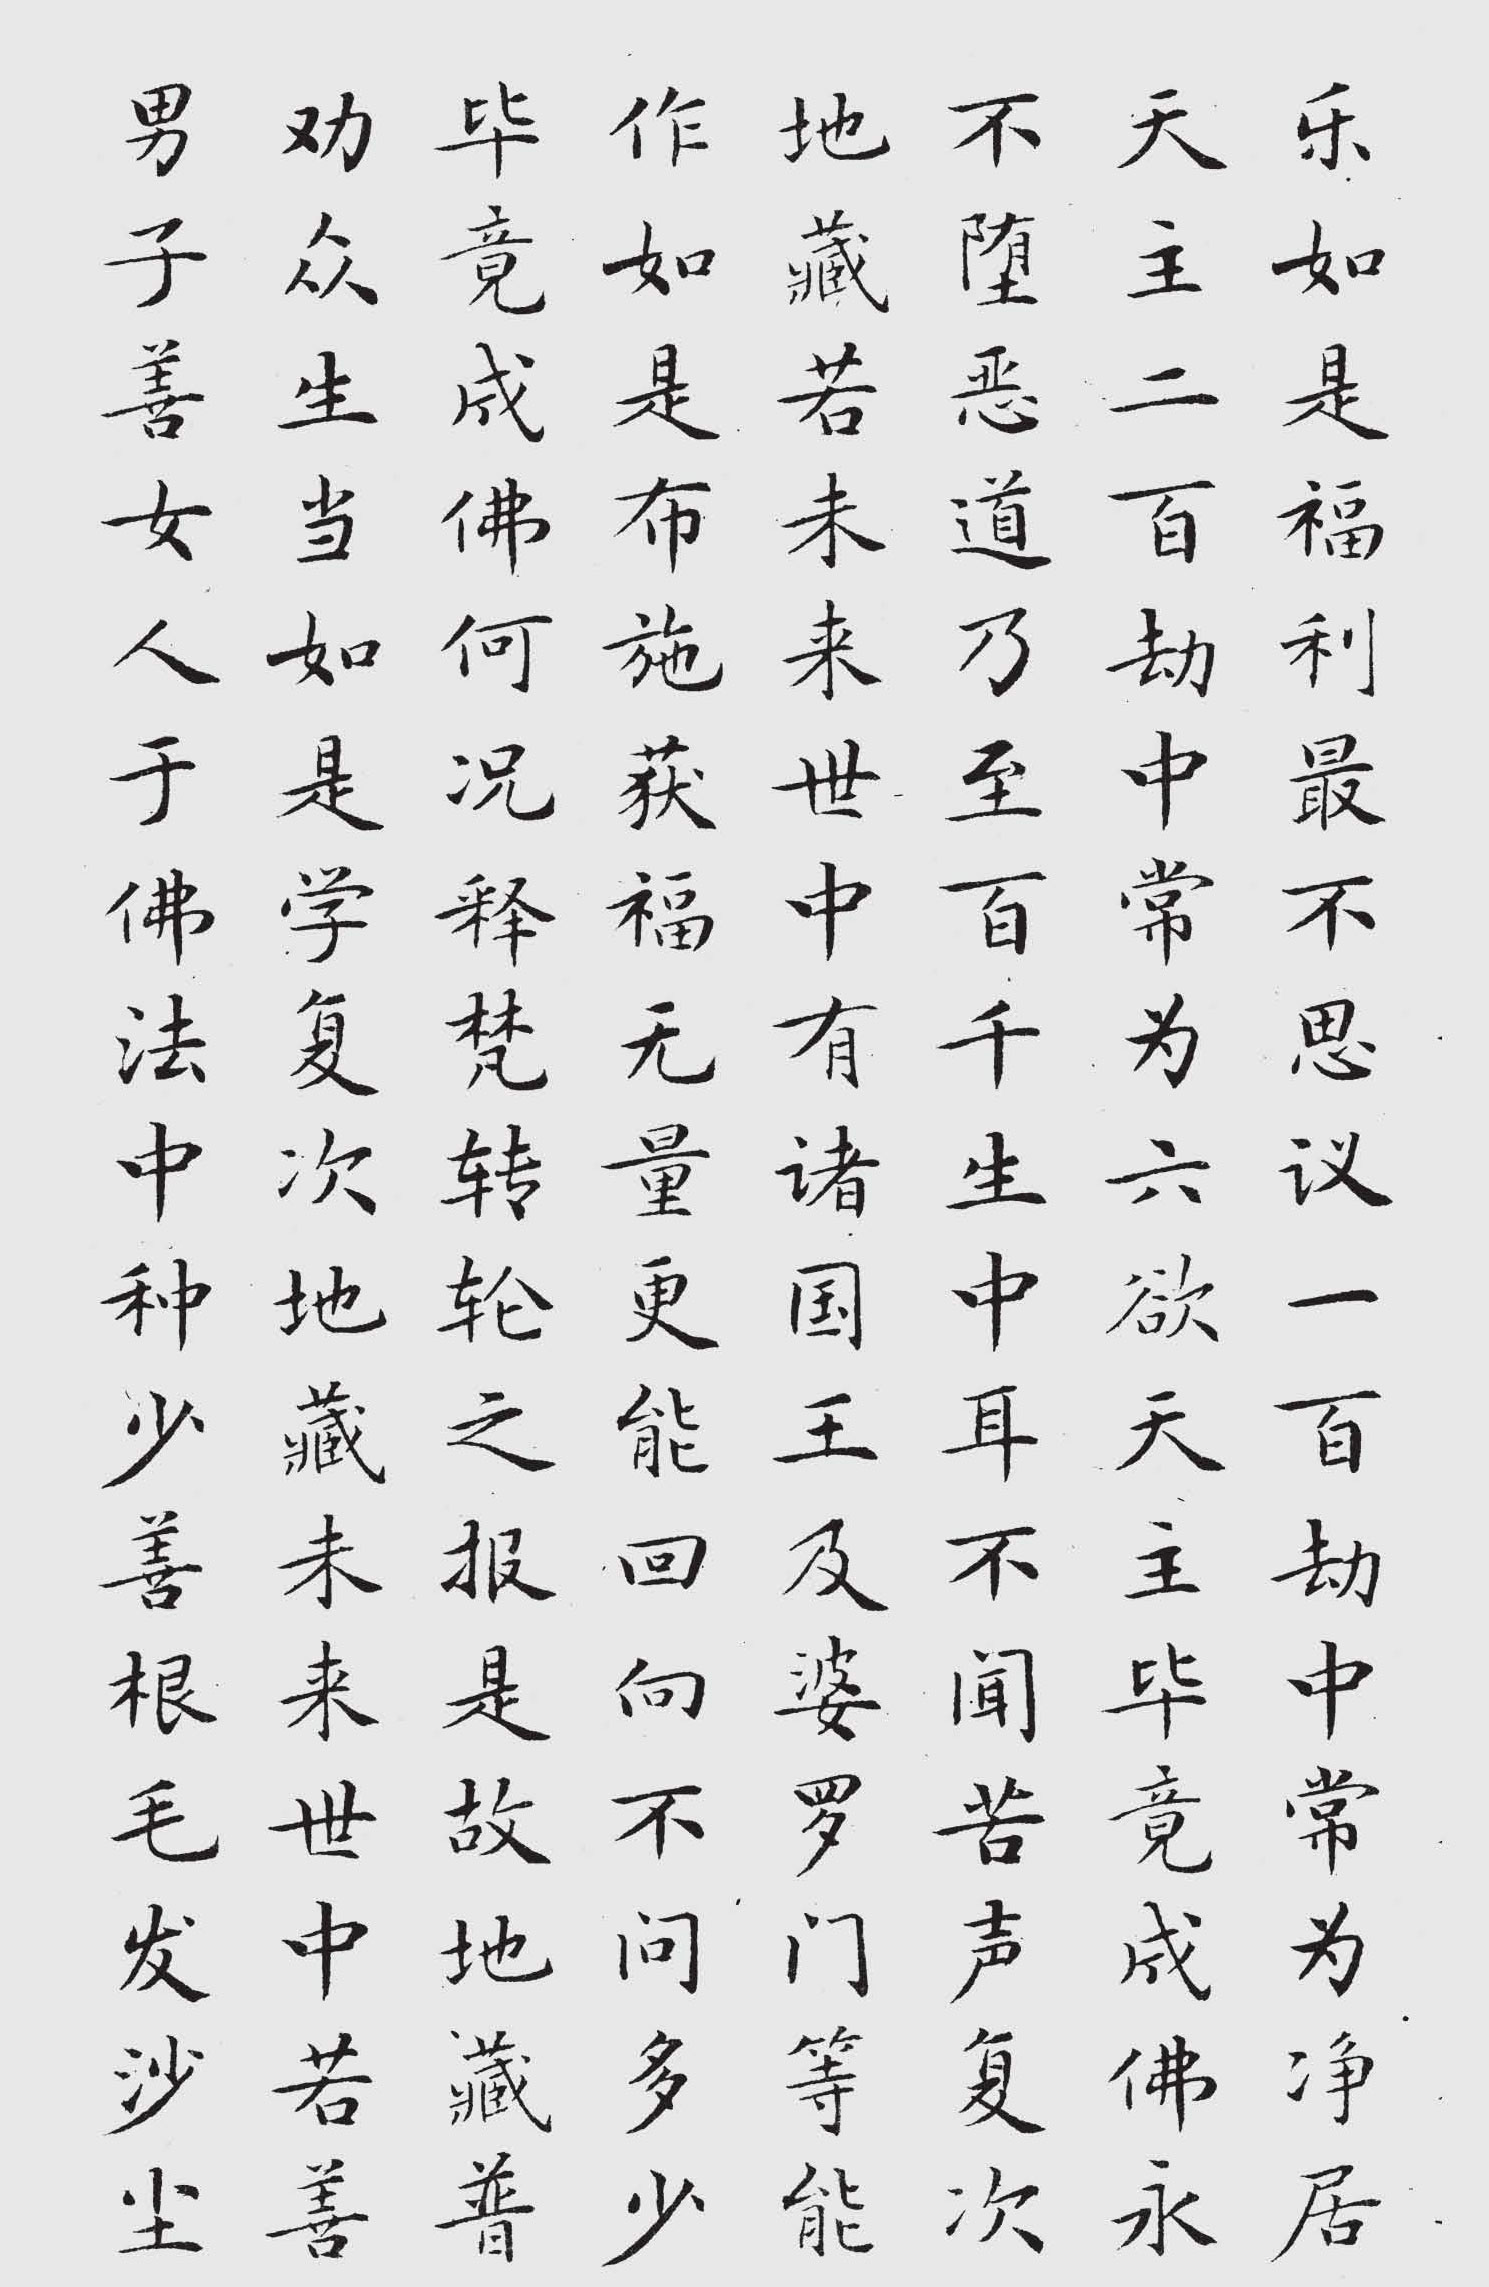 乐如是福利最不思议一百劫中常为净居
天主二百劫中常为六欲天主毕竟成佛永
不堕恶道乃至百千生中耳不闻苦声复次
地藏若未来世中有诸国王及婆罗门等能
作如是布施获福无量更能回向不问多少
毕竟成佛何况释梵转轮之报是故地藏普
劝众生当如是学复次地藏未来世中若善
男子善女人于佛法中种少善根毛发沙尘